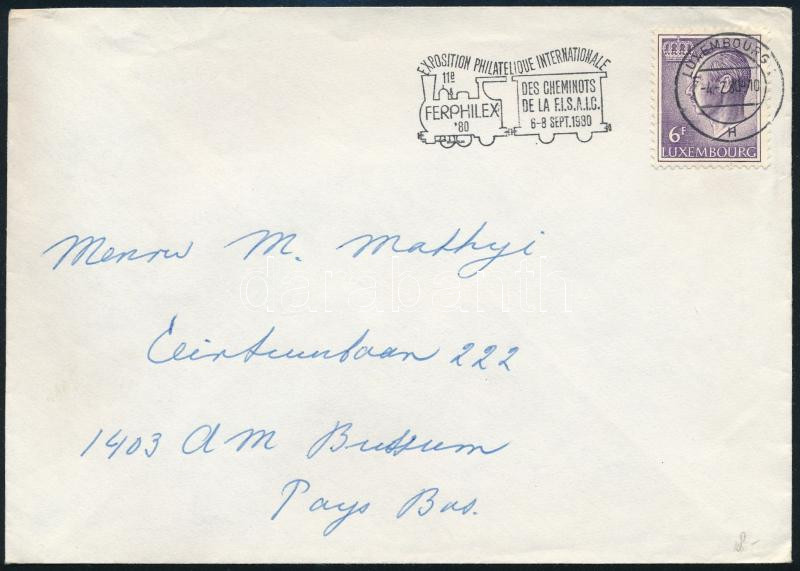 EXPOSITION PHILATELIQUE INTERNATIONALE
11e
FERPHILEX
'80
DES CHEMINOTS
DE LA F.I.S.A.I.C.
6-8 SEPT.1980
LUXEMBOURG
-4-7 80-10
H
6F
LUXEMBOURG
M. Mathyi
darabanth
222
1403 AM Bussum
Pays Bas.